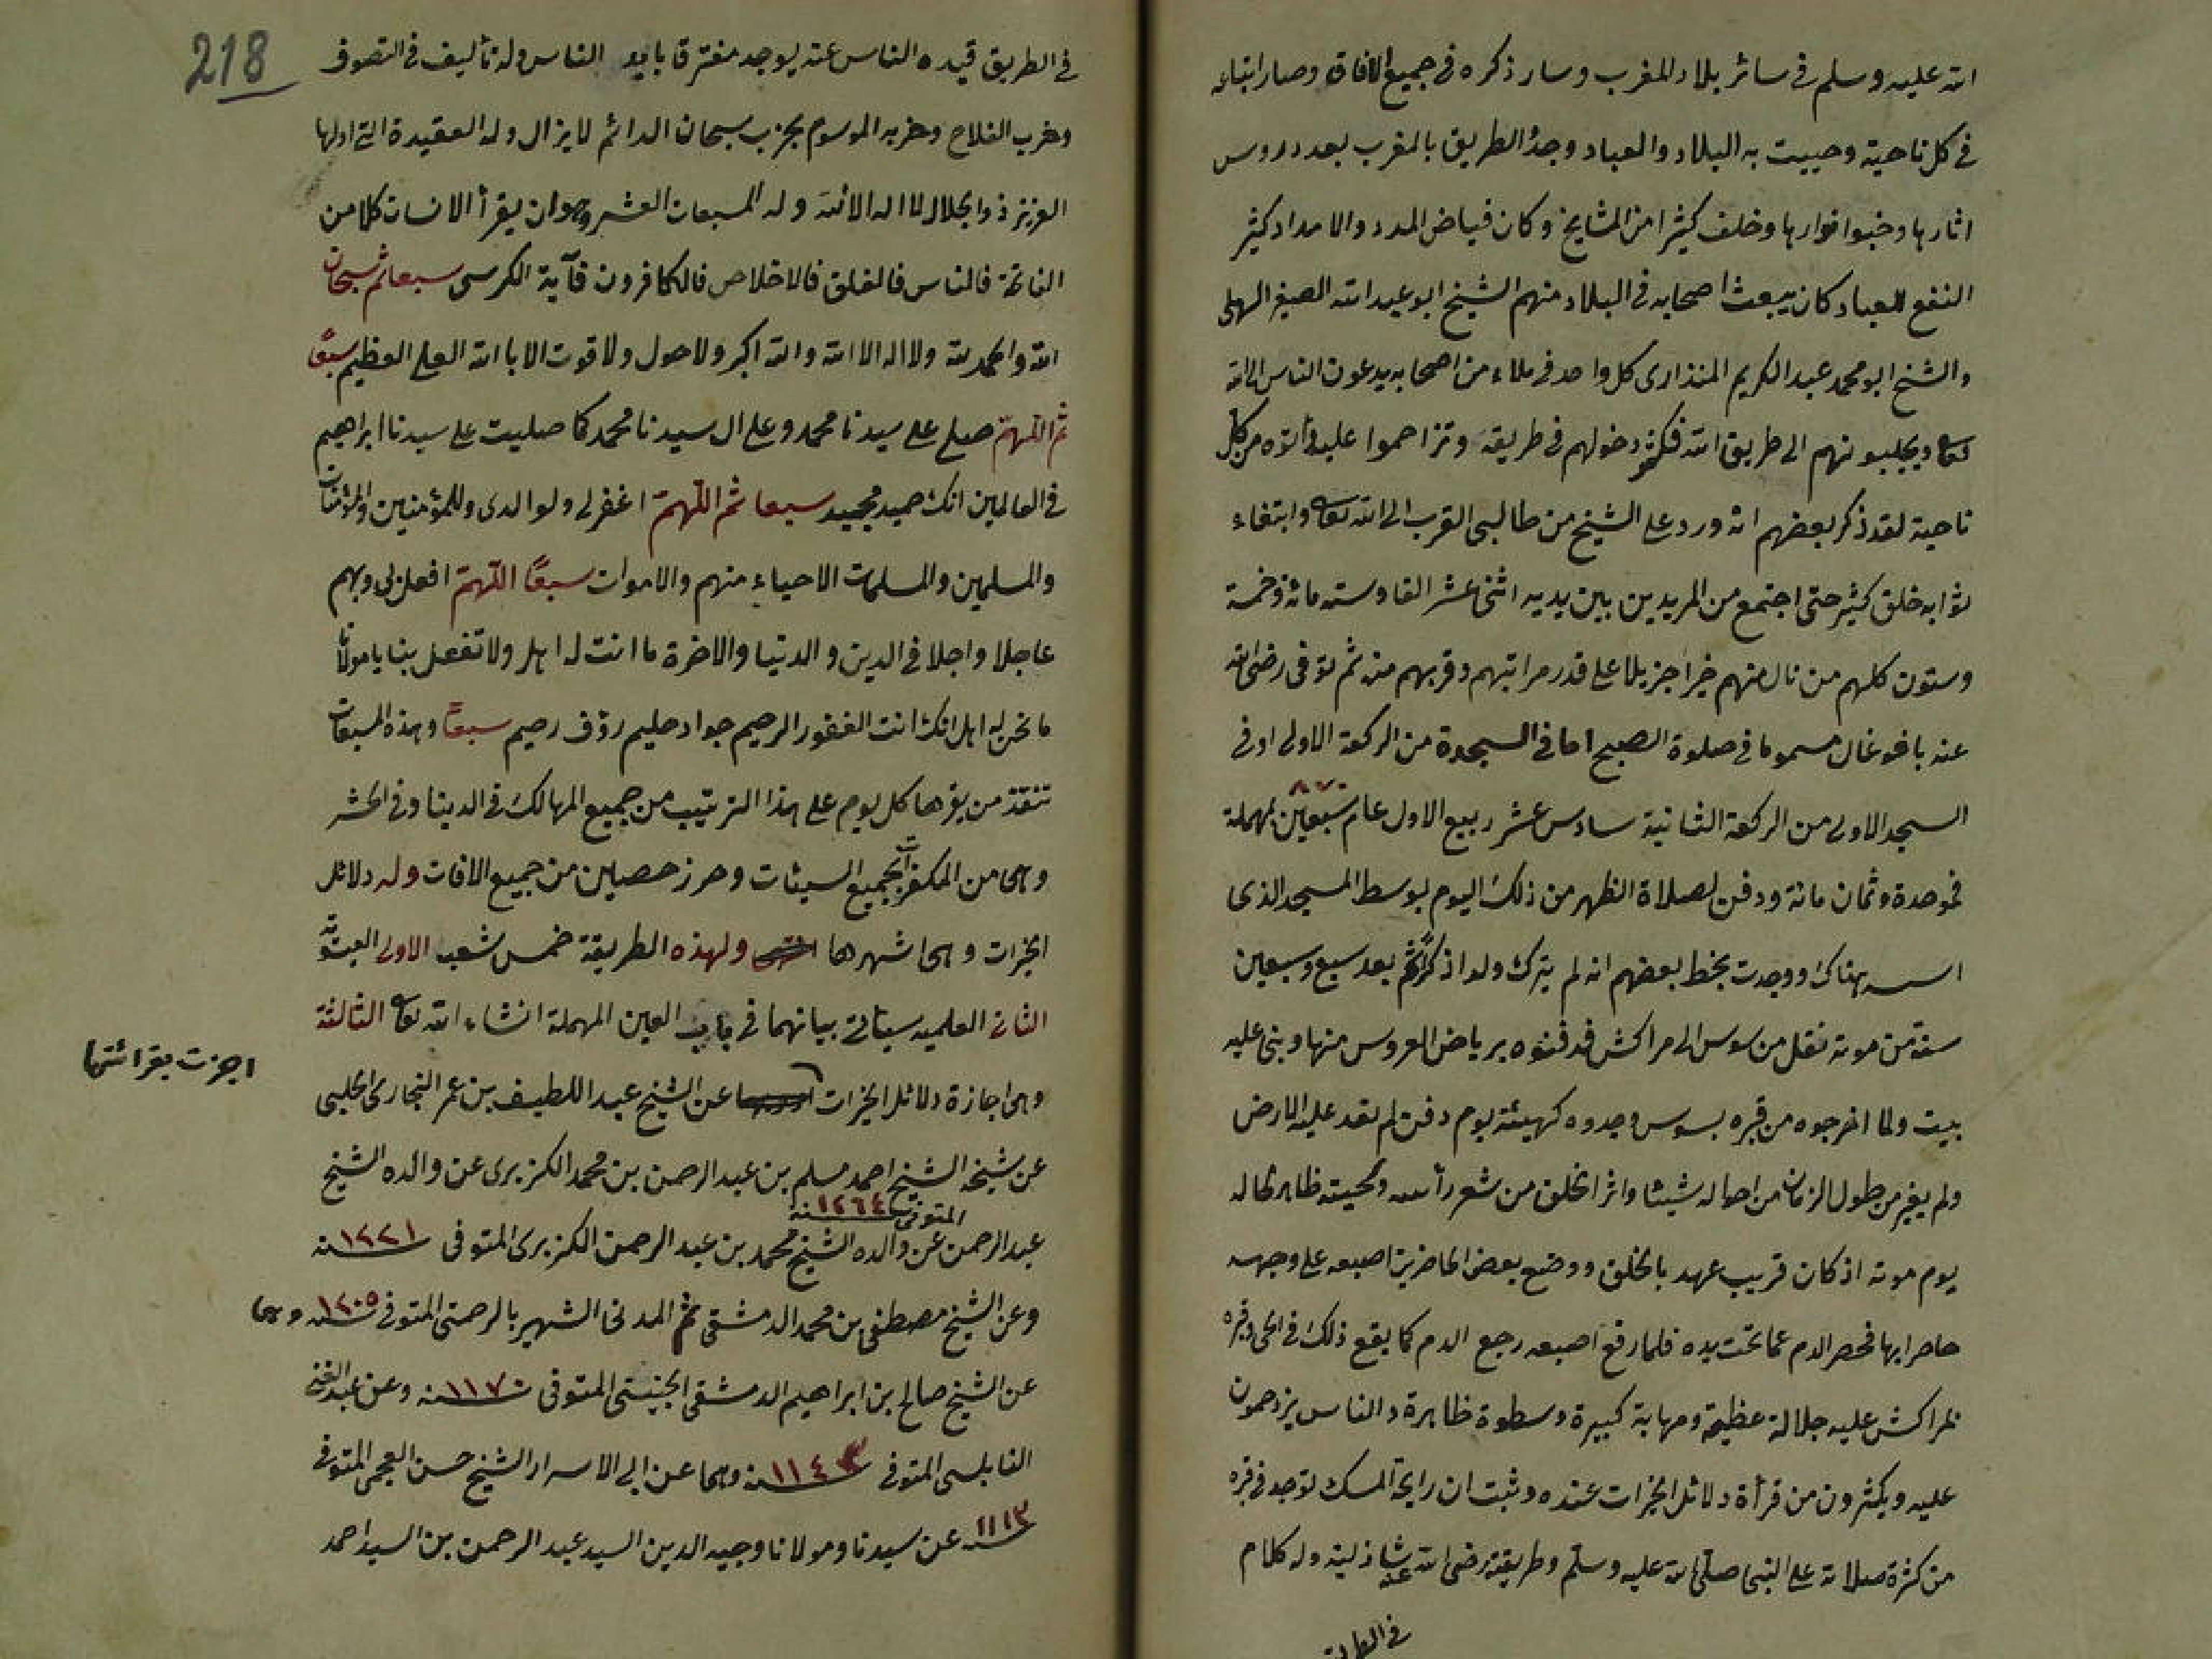 الله عليه وسلم فى سائر بلاد المغرب وسار ذكره فى جميع الافاق وصار اتباعه
فى كل ناحية وحييت به البلاد والعباد وجدد الطريق بالمغرب بعد دروس
اثارها وخبو انوارها وخلف كثيرا من المشايخ وكان فياض المدد والامداد كثير
النفع للعباد كان يبعث اصحابه فى البلاد منهم الشيخ ابو عبد الله الصغير السهلى
والشيخ ابو محمد عبد الكريم المنذارى كل واحد فى ملاء من اصحابه يدعون الناس الى الله
تعالى ويجلبونهم الى طريق الله فكثر دخولهم فى طريقه وتزاحموا عليه وأتوه من كل
ناحية لقد ذكر بعضهم انه ورد على الشيخ من طالبى القرب الى الله تعالى وابتغاء
ثوابه خلق كثير حتى اجتمع من المريدين بين يديه اثنى عشر الفا وستمائة وخمسة
وستون كلهم من نال منهم خيرا جزيلا على قدر مراتبهم وقربهم منه ثم توفى رضى الله
عنه بافوغال مسموما فى صلوة الصبح اما فى السجدة من الركعة الاولى او فى
السجد الاولى من الركعة الثانية سادس عشر ربيع الاول عام سبعين بمهملة ٨٧٠
فموحدة وثمان مائة ودفن لصلاة الظهر من ذلك اليوم بوسط المسجد الذى
اسسه هناك ووجدت بخط بعضهم انه لم يترك ولدا ذكرا ثم بعد سبع وسبعين
سنة من موته نقل من سوس الى مراكش فدفنوه برياض العروس منها وبنى عليه
بيت ولما اخرجوه من قبره بسوس وجدوه كهيئته يوم دفن لم تعد عليه الارض
ولم يغير من طول الزمان من احواله شيئا واثر الحلق من شعر رأسه ولحيته ظاهر كحاله
يوم موته اذ كان قريب عهد بالحلق ووضع بعض الحاضرين اصبعه على وجهه
حاصرا بها فحصر الدم عما تحت يده فلما رفع اصبعه رجع الدم كما يقع ذلك فى الحى وقبره
بمراكش عليه جلالة عظيمة ومهابة كبيرة وسطوة ظاهرة والناس يزدحمون
عليه ويكثرون من قرأة دلائل الخيرات عنده وثبت ان رايحة المسك توجد فى قبره
من كثرة صلاته على النبى صلى الله عليه وسلم وطريقته رضى الله عنه شاذلية وله كلام
فى الطريق
218
فى الطريق قيده الناس عنه يوجد مفترقا بايد الناس وله تأليف فى التصوف
وحزب الفلاح وحزبه الموسوم بحزب سبحان الدائم لا يزال وله العقيدة التى اولها
العزيز ذو الجلال لا اله الا الله وله المسبعات العشر وهو ان يقرأ الانسان كلا من
الفاتحة فالناس فالفلق فالاخلاص فالكافرون فآية الكرسى سبعا ثم سبحان
الله والحمد لله ولا اله الا الله والله اكبر ولا حول ولا قوت الا بالله العلى العظيم سبعًا
ثم اللهم صلى على سيدنا محمد وعلى ال سيدنا محمد كما صليت على سيدنا ابراهيم
فى العالمين انك حميد مجيد سبعا ثم اللهم اغفر لى ولوالدى وللمؤمنين والمؤمنات
والمسلمين والمسلمات الاحياء منهم والاموات سبعًا اللهم افعل بى وبهم
عاجلا واجلا فى الدين والدنيا والاخرة ما انت له اهل ولا تفعل بنا يا مولانا
ما نحن له اهل انك انت الغفور الرحيم جواد حليم رؤف رحيم سبعًا وهذه المسبعات
تنقذ من يقرها كل يوم على هذا الترتيب من جميع المهالك فى الدينا وفى الحشر
وهى من المكفرات لجميع السيئات وحرز حصين من جميع الافات وله دلائل
الخيرات وهى اشهرها ولهذه الطريقة خمس شعب الاولى
الثانى العلميه سيأتى بيانهما فى باب العين المهملة انشاء الله تعالى الثالثة
وهى اجازة دلائل الخيرات عن الشيخ عبد اللطيف بن عمر البخارى الحلبى
اجزت بقرائتها
عن شيخه الشيخ احمد مسلم بن عبد الرحمن بن محمد الكزبرى عن والده الشيخ
المتوفى سنه ١٢٦٤
عبد الرحمن عن والده الشيخ محمد بن عبد الرحمن الكزبرى المتوفى سنه ١٢٢١
وعن الشيخ مصطفى بن محمد الدمشقى ثم المدنى الشهير بالرحمتى المتوفى سنه ١٢٠٥ وهما
عن الشيخ صالح بن ابراهيم الدمشقى الجنيتى المتوفى سنه ١١٧٠ وعن عبد الغنى
النابلسى المتوفى سنه ١١٤٣ وهما عن ابى الاسرار الشيخ حسن العجمى المتوفى
سنه ١١١٣ عن سيدنا ومولانا وجيه الدين السيد عبد الرحمن بن السيد احمد